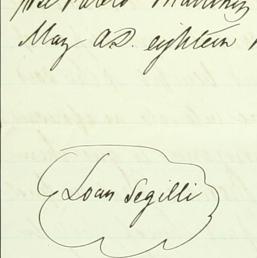 Pablo Martinez
May AD. eighteen
Loan Segilli